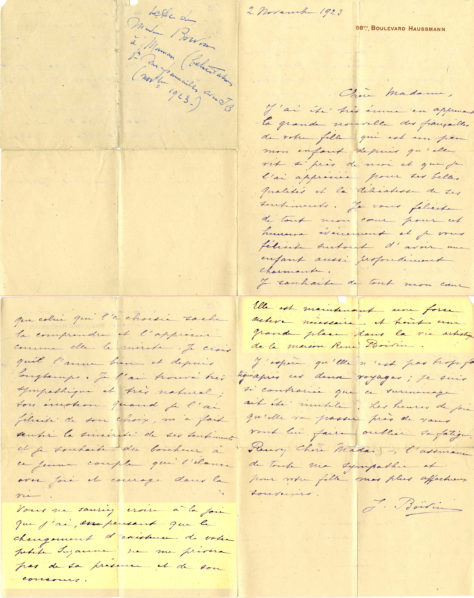 Lettre de
Madame Boivin
à Maman
(Novbre
1923.)
2 Novembre 1923
BOULEVARD HAUSSMANN
Chère Madame,
J'ai été très émue en apprenant
la grande nouvelle des fiançailles
de votre fille qui est un peu
mon enfant depuis qu'elle
vit si près de moi et que je
l'ai appréciée pour ses belles
qualités et la délicatesse de ses
sentiments. Je vous félicite
de tout mon cœur pour cet
heureux événement et je vous
félicite surtout d'avoir une
enfant aussi profondément
charmante.
Je souhaite de tout mon cœur
que celui qui l'a choisie sache
la comprendre et l'apprécier
comme elle le mérite. Je crois
qu'il l'aime bien et depuis
longtemps. Je l'ai trouvé très
sympathique et très naturel;
son émotion quand je l'ai
félicité de son choix, m'a fait
sentir la sincérité de ses sentiments
et je souhaite du bonheur à
ce jeune couple qui s'élance
avec foi et courage dans la
vie.
Vous ne sauriez croire à la joie
que j'ai, en pensant que le
changement d'existence de votre
petite Suzanne ne me privera
pas de sa présence et de son
concours.
Elle est maintenant une force
active nécessaire et tient une
grande place dans la vie artistique
de la maison René Boivin
J'espère qu'Elle n'est pas trop
après ces deux voyages; je suis
si contrariée que ce surmenage
ait été inutile. Les heures de joie
qu'elle va passer près de vous
vont lui faire oublier sa fatigue
Recevez, Chère Madame, l'assurance
de toute ma sympathie et
pour votre fille mes plus affectueux
souvenirs.
J. Boivin